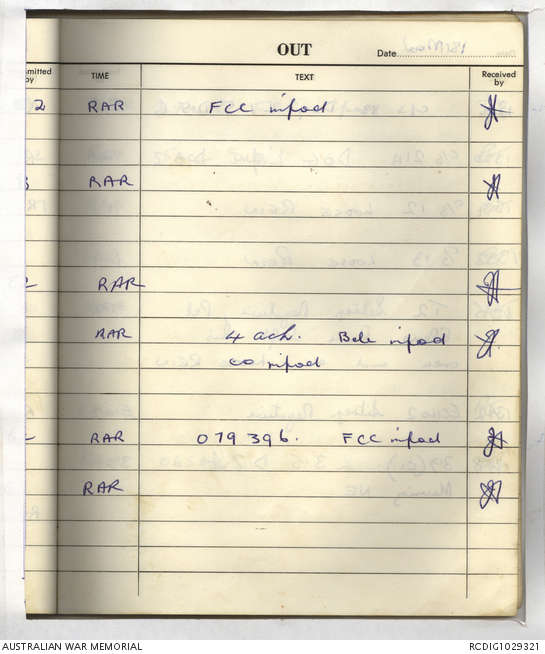 OUT
Date
mitted by
TIME
TEXT
Received by
2 RAR FCC infod
RAR
RAR
RAR 4 ach. Bde infod
CO infod
RAR 079396. FCC infod
RAR
AUSTRALIAN WAR MEMORIAL RCDIG1029321